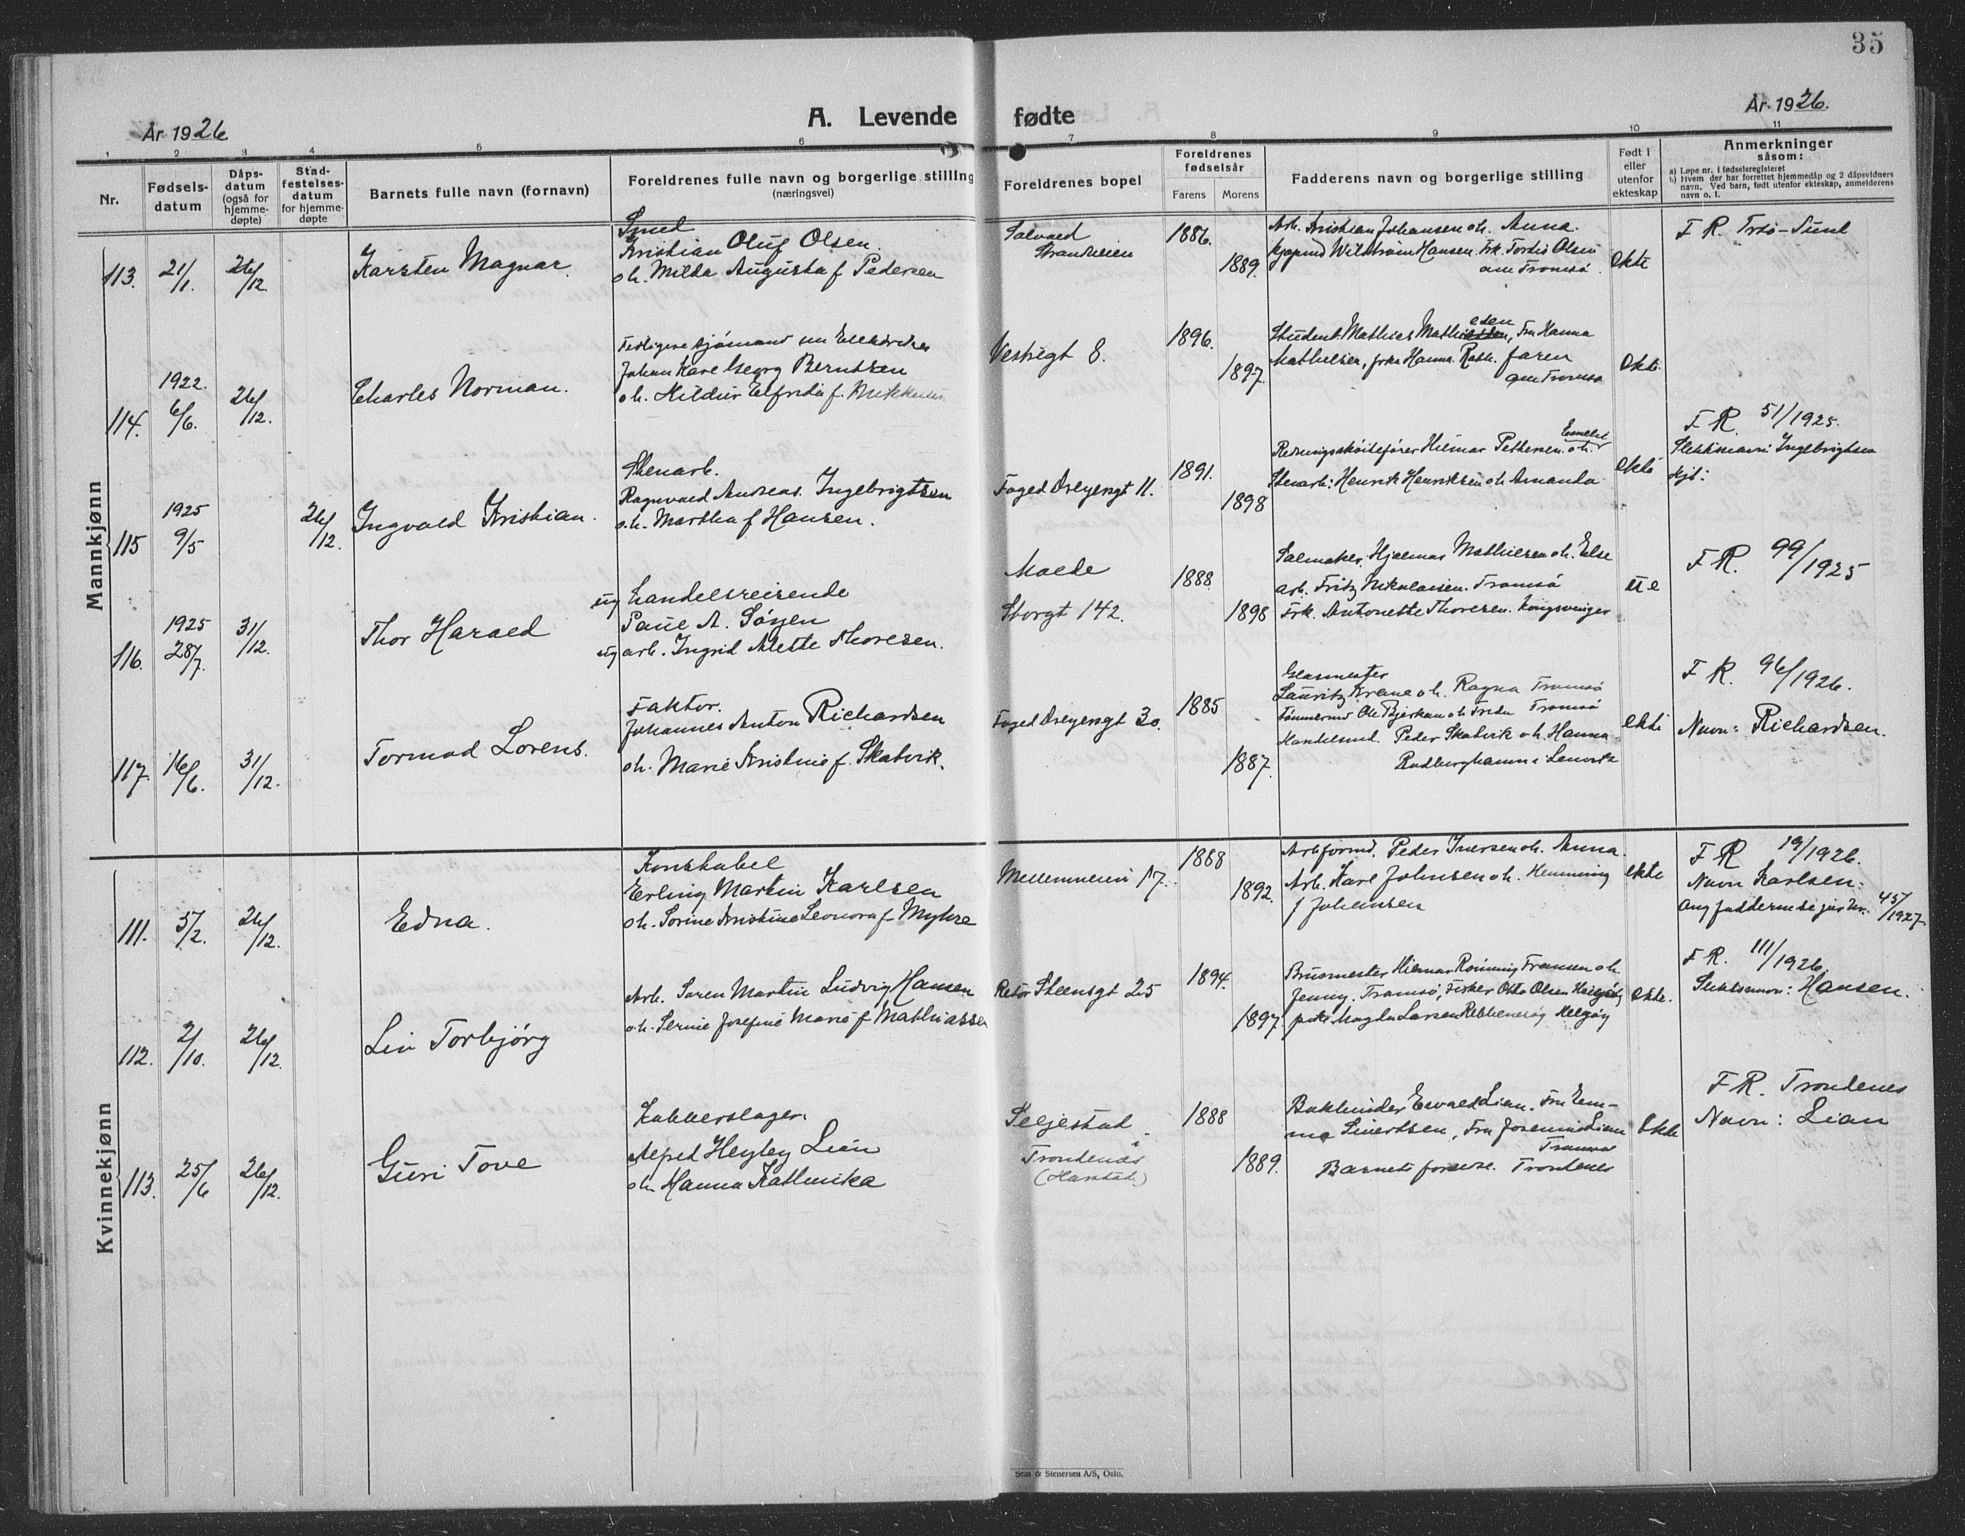 35
År 1926
A. Levende fødte
År 1926.
1 2 3 4 5 6 7 8 9 10 11
Nr.
Fødsels-
datum
Dåps-
datum
(også for
hjemme-
døpte)
Stad-
festelses-
datum
for hjemme-
døpte
Barnets fulle navn (fornavn)
Foreldrenes fulle navn og borgerlige stilling
(næringsvei)
Foreldrenes bopel
Foreldrenes
fødselsår
Farens Morens
Fadderens navn og borgerlige stilling
Født i
eller
utenfor
ekteskap
Anmerkninger
såsom:
a) Løpe nr. i fødselsregisteret
b) Hvem der har forrettet hjemmedåp og 2 dåpsvidners
navn. Ved barn, født utenfor ekteskap, anmelderens
navn o. l.
Mannkjønn
113. 21/1. 26/12. Karsten Magnar.
Smed
Kristian Oluf Olsen.
o.h. Milda Augusta f. Pedersen
Strandveien
1886.
1889.
Arb. Kristian Johansen o.h. Anna.
Hansen. Frk. Tordis Olsen
Tromsø.
ekte
F. R. Trds-Sund
114. 1922. 6/6. 26/12. Charles Norman.
Tidligere sjømand nu
Johan Kare Georg Berntsen
o.h. Hildur Elfrida f.
Vestregt 8.
1896.
1897.
Student Mathias Mathiesen, Fru Hanna
Mathiesen, frk. Hanna
Tromsø
ekte
F. R. 51/1925.
115 1925 9/5 26/12. Ingvald Kristian.
Stenarb.
Ragnvald Andreas. Ingebrigtsen
o.h. Martha f Hansen.
Foged Dreyergt 11.
1891.
1898
Redningsskøitefører Hilmar Pettersen o.h.
Stenarb. Henrik Henriksen o.h. Amanda
ekte
Slektsnavn: Ingebrigtsen
116. 1925 28/7. 31/12. Thor Harald
ug handelsreisende
A.
ug arb. Ingrid Alette Thoresen.
Molde
Storgt 142.
1888.
1898
Salmaker. Hjalmar Mathiesen o.h. Else
arb. Fritz Nikolaisen. Tromsø
Frk. Antonette Thoresen. Kongsvinger
ue
F. R. 99/1925
117. 16/6. 31/12. Tormod Lorens.
Faktor.
Johannes Anton Richardsen
o.h. Marie Kristine f. Skatvik.
Foged Dreyergt 30.
1885
1887.
Glasmester
Lauritz Krane o.h. Ragna Tromsø
Tømmermd Ole Bjerkan o.h. Frida Tromsø
Handelsmd. Peder Skatvik o.h. Hanna
Rødberghamn i Lenvik
ekte
F. R. 96/1926.
Navn: Richardsen.
Kvinnekjønn
111. 5/2. 26/12. Edna.
Konstabel
Erling Martin Karlsen
o.h. Sorine Kristine Leonora f Myhre
Mellemveien 17.
1868
1892.
Arb.formd. Peder Iversen o.h. Anna.
Arb. Karl Johnsen o.h. Henning
f Johansen
ekte
F R 19/1926.
Navn Karlsen.
Ang fadderne se jnr. 457/1927.
112. 2/10. 26/12. Liv Torbjørg
Arb. Søren Martin Ludvig Hansen
o.h. Serine Josefine Marie f Mathiassen
Rektor Steensgt 25
1894.
1897.
Brusmester Hilmar Rønning Fransen o.h.
Jenny. Tromsø, Fisker Otto Olsen Helgøy
Magda Larsen Helgøy
ekte.
F. R. 111/1926.
Slektsnavn: Hansen.
113. 25/6 26/12. Guri Tove
Kobberslager.
Alfred Heyley Lian
o.h. Hanna Kathinka
Seljestad
i
Trondenes
(Harstad)
1888
1889.
Bokbinder Evald Lian. Fru Em-
ma Sivertsen, Fru Josefine Lian
Tromsø
Barnets foreldre. Trondenes
Ekte
F R. Trondenes
Navn: Lian
Sem & Stenersen A/S, Oslo.